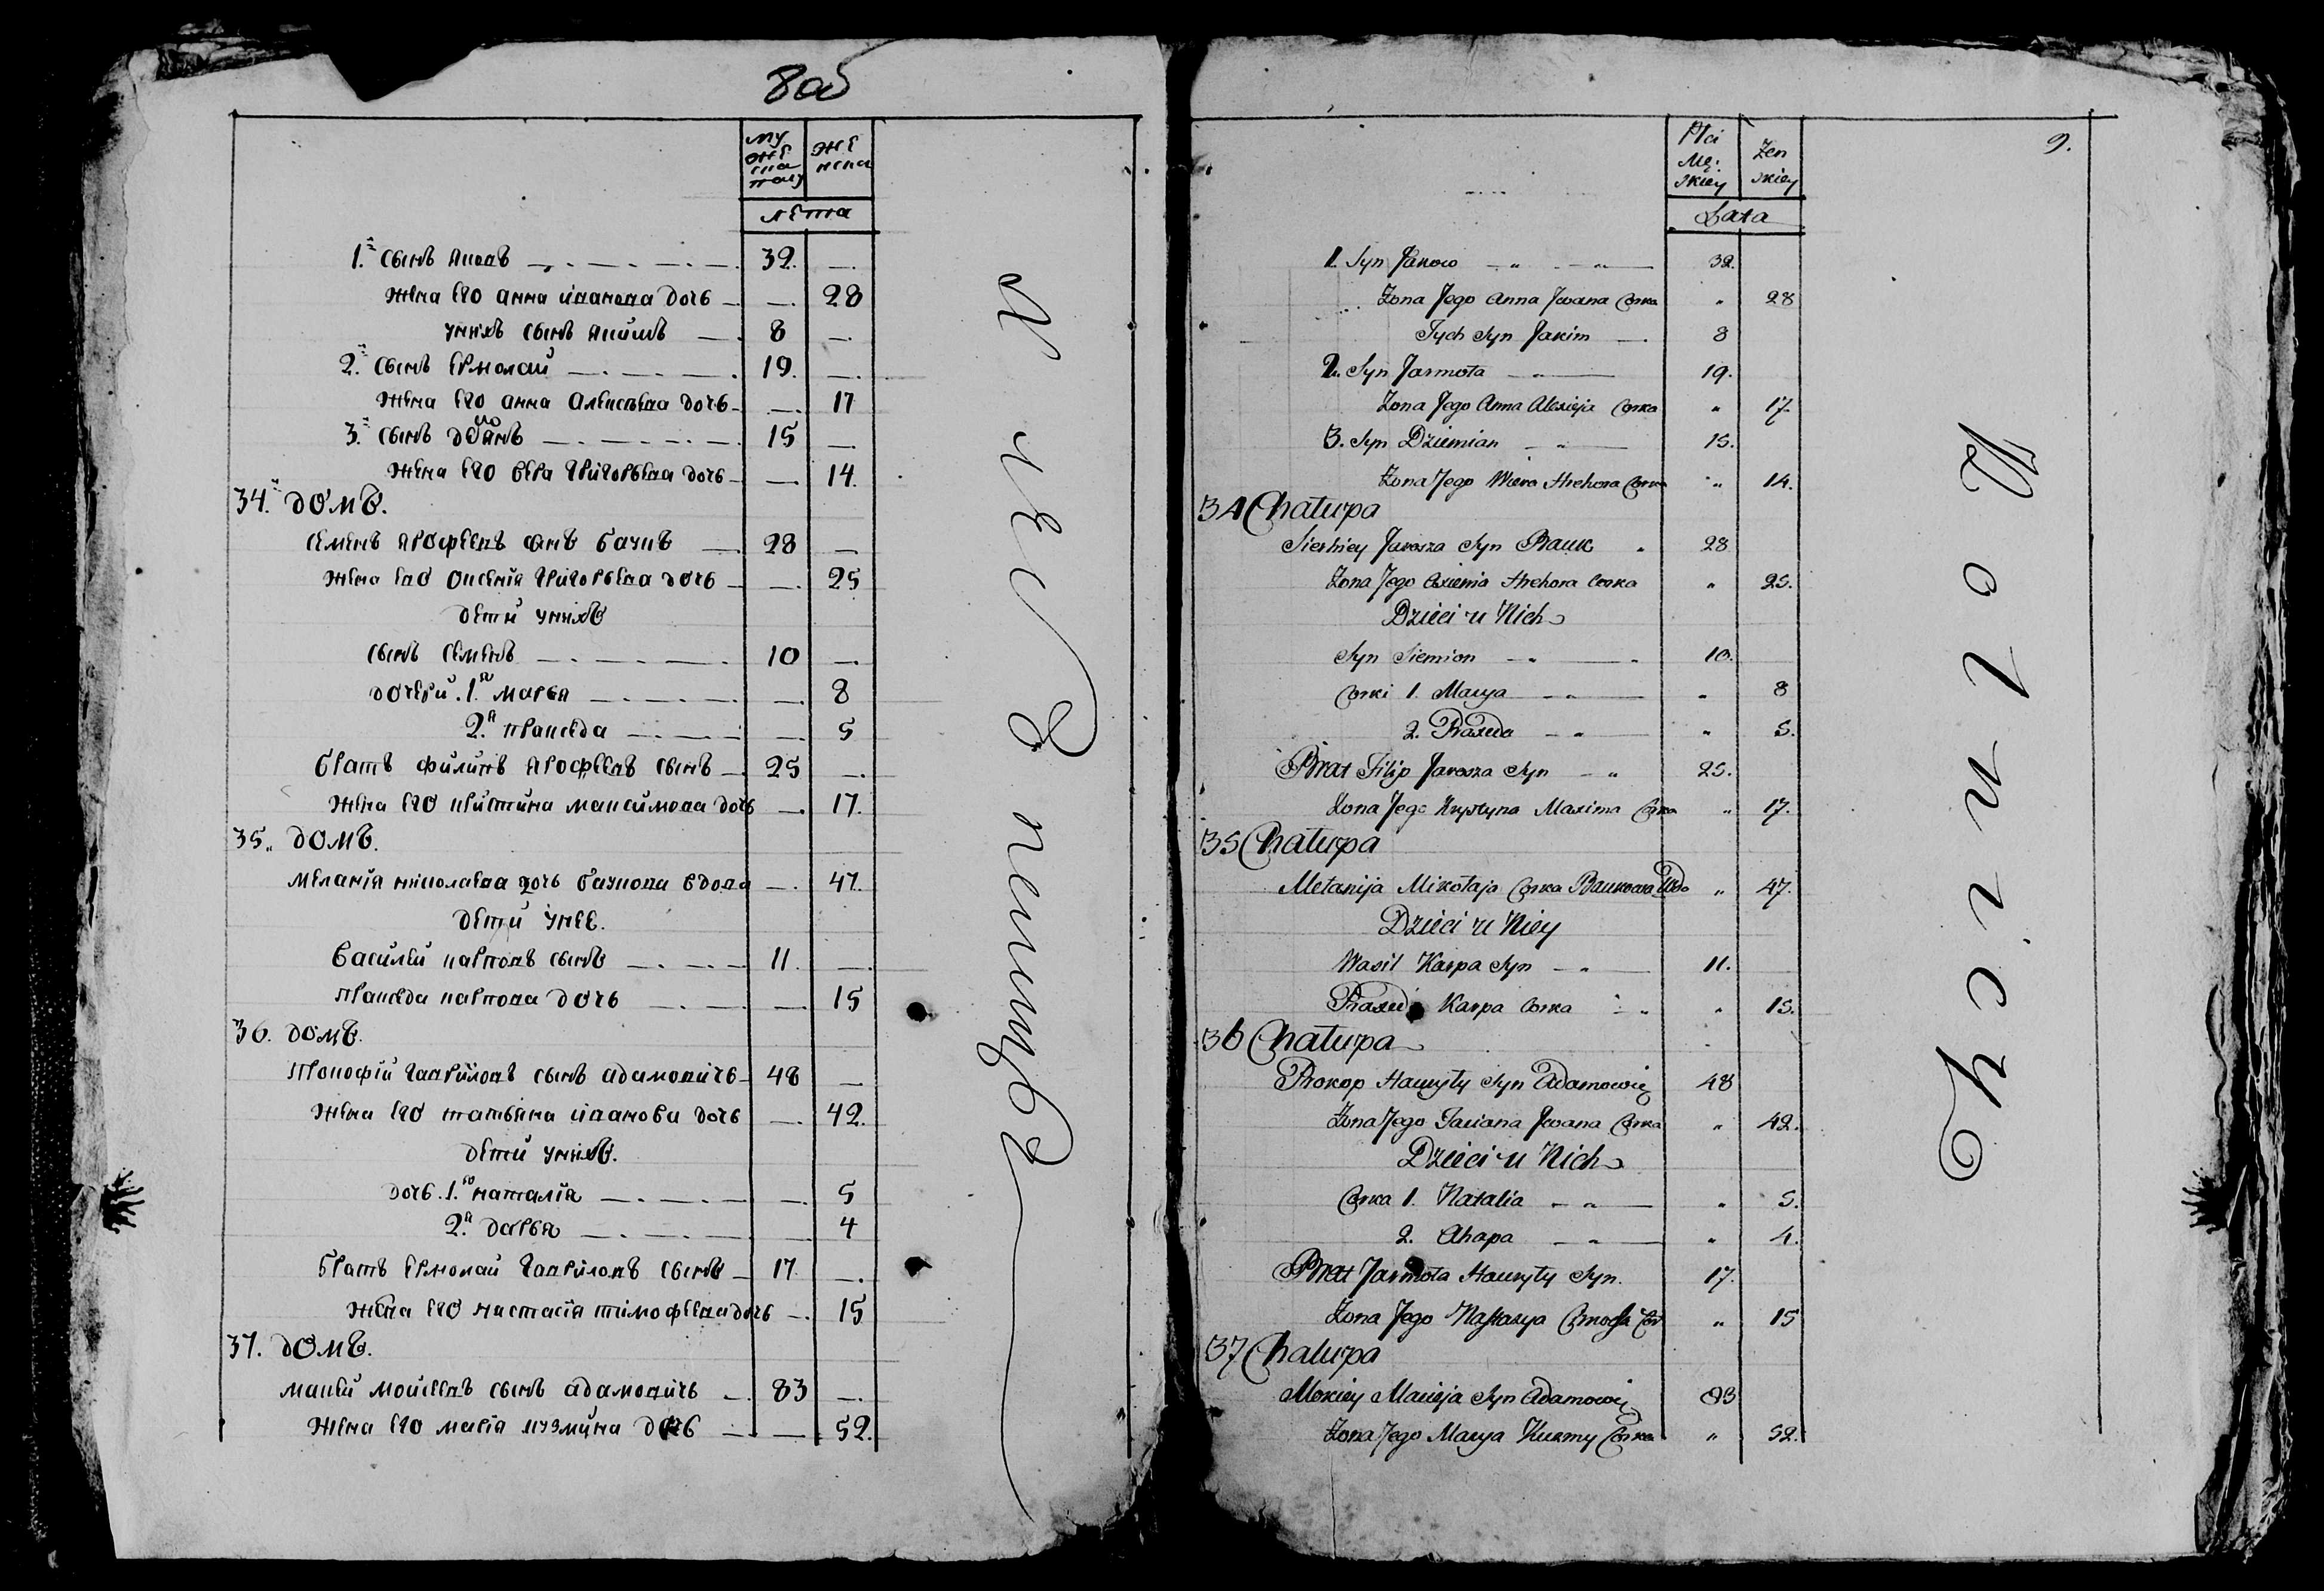 8об
му
же
ска
полу
же
нска
лета
1.й сынъ яковъ 32. —
жена его анна иванова дочь — 28
унихъ сынъ якимъ 8 —
2.й сынъ ермолай 19. —
жена его анна алексеева дочь — 17
3.й сынъ 15 —
жена его вера григорьева дочь — 14.
34. домъ.
семенъ ярофеевъ сынъ бачикъ 28 —
жена его оксения григорьева дочь — 25
дети унихъ
сынъ семенъ 10 —
дочери. 1.я марья — 8
2.я пракседа — 5
братъ филипъ ярофеевъ сынъ 25 —
жена его кристина максимова дочь — 17.
35. домъ.
мелания николаева дочь вдова — 47.
дети унее.
василей карповъ сынъ 11. —
пракседа карпова дочь — 15
36. домъ.
прокофий гаврыловъ сынъ адамовичъ 48 —
жена его татьяна иванова дочь — 42.
дети унихъ.
дочь. 1.я наталия — 5
2.я дарья — 4
братъ ермолай гавриловъ сынъ 17 —
жена его настасия тимофеева дочь — 15
37. домъ.
мокей моисеевъ сынъ адамовичъ 83 —
жена его мария кузмина дочь — 52.
9.
Płci
Mę.
skiey
Żen
skiey
Lata
1. Syn Jakow 32.
Żona Jego Anna Jwana Corka " 28
Tych Syn Jakim 8
2. Syn Jarmoła 19.
Żona Jego Anna Alexieja Corka " 17.
3. Syn Dziemian 15.
Żona Jego Wiera Hrehora Corka " 14.
34 Chałupa
Jarosza Syn Bauk 28
Żona Jego Axienia Hrehora Corka " 25.
Dzieci u Nich
Syn Siemion 10.
Corki 1. Marya " 8
2. Praxeda " 5.
Brat Filip Jarosza Syn 25.
Żona Jego Krystyna Maxima Corka " 17.
35 Chałupa
Mełanija Mikołaja Corka Baukowa Wdo " 47.
Dzieci u Niey
Wasil Karpa Syn 11.
Praxeda Karpa Corka " 15.
36 Chałupa
Prokop Hauryły Syn Adamowicz 48
Żona Jego Taciana Jwana Corka " 42.
Dzieci u Nich
Corka 1. Natalia " 5.
2. Ahapa " 4.
Brat Jarmoła Hauryły Syn. 17.
Żona Jego Nastazya Cor " 15
37 Chałupa
Mokiey Macieja Syn Adamowicz 83
Żona Jego Marya Kuzmy Corka " 52.